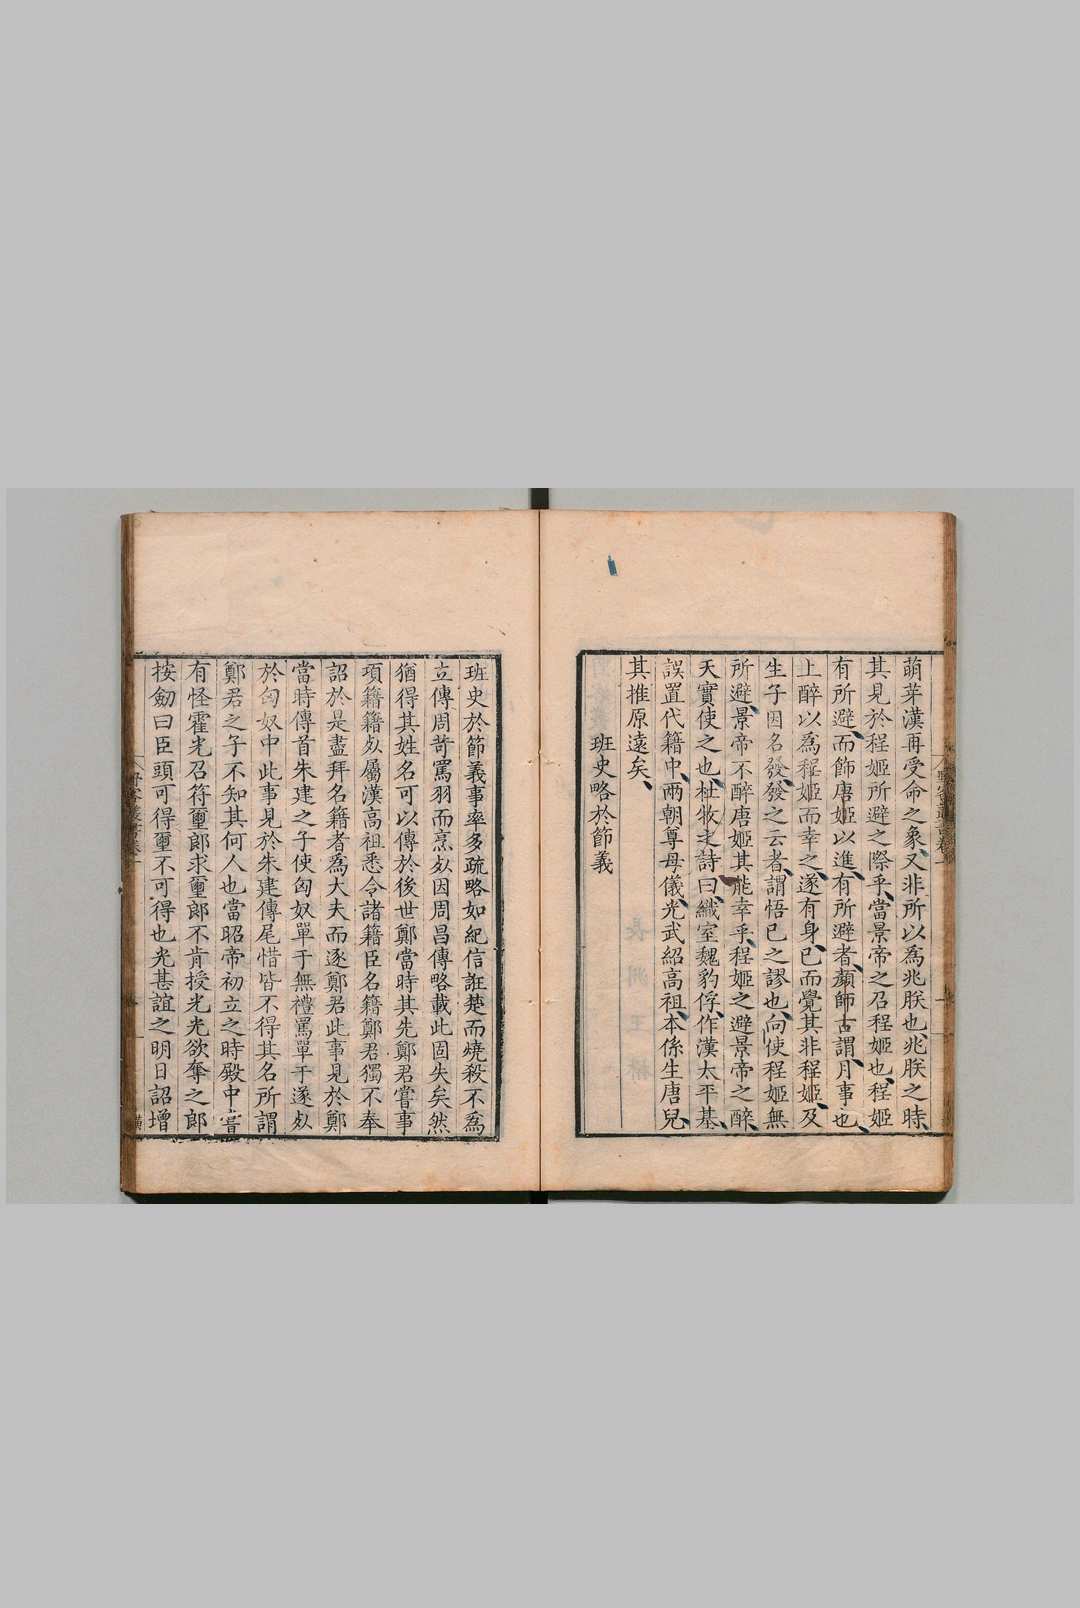 萌芽漢再受命之象又非所以爲兆朕也兆朕之時
其見於程姬所避之際乎當景帝之召程姬也程姬
有所避而飾唐姬以進有所避者顏師古謂月事也
上醉以爲程姬而幸之遂有身已而覺其非程姬及
生子因名發發之云者謂悟已之謬也向使程姬無
所避景帝不醉唐姬其能幸乎程姬之避景帝之醉
天實使之也杜牧之詩曰織室魏豹俘作漢太平基
誤置代籍中兩朝尊母儀光武紹高祖本係生唐兒
其推原遠矣
班史略於節義
班史於節義事率多疏略如紀信誑楚而燒殺不爲
立傳周苛罵羽而烹死因周昌傳略載此固失矣然
猶得其姓名可以傳於後世鄭當時其先鄭君嘗事
項籍籍死屬漢高祖悉令諸籍臣名籍鄭君獨不奉
詔於是盡拜名籍者爲大夫而逐鄭君此事見於鄭
當時傳首朱建之子使匈奴單于無禮罵單于遂死
於匈奴中此事見於朱建傳尾惜皆不得其名所謂
鄭君之子不知其何人也當昭帝初立之時殿中嘗
有怪霍光召符璽郎求璽郎不肯授光光欲奪之郎
按劒曰臣頭可得璽不可得也光甚誼之明日詔增